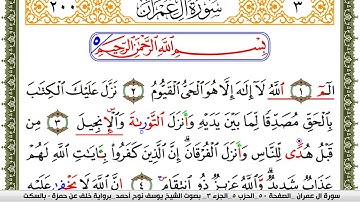 ٢٠٠ سُورَةُ آلِ عِمْرَان ٣
بِسْمِ اللَّهِ الرَّحْمَٰنِ الرَّحِيمِ
الٓمٓ ١ اللَّهُ لَآ إِلَٰهَ إِلَّا هُوَ الْحَيُّ الْقَيُّومُ ٢ نَزَّلَ عَلَيْكَ الْكِتَابَ
بِالْحَقِّ مُصَدِّقًا لِّمَا بَيْنَ يَدَيْهِ وَأَنزَلَ التَّوْرَىٰةَ وَالْإِنجِيلَ ٣ مِن
قَبْلُ هُدًى لِّلنَّاسِ وَأَنزَلَ الْفُرْقَانَ إِنَّ الَّذِينَ كَفَرُوا بِـَٔايَاتِ اللَّهِ لَهُمْ
عَذَابٌ شَدِيدٌ وَاللَّهُ عَزِيزٌ ذُو انتِقَامٍ ٤ إِنَّ اللَّهَ لَا يَخْفَىٰ عَلَيْهِ
سورة آل عمران - الصفحة ٥٠ - الحزب ٥ - الجزء ٣ - بصوت الشيخ يوسف نوح أحمد - برواية خلف عن حمزة - بالسكت